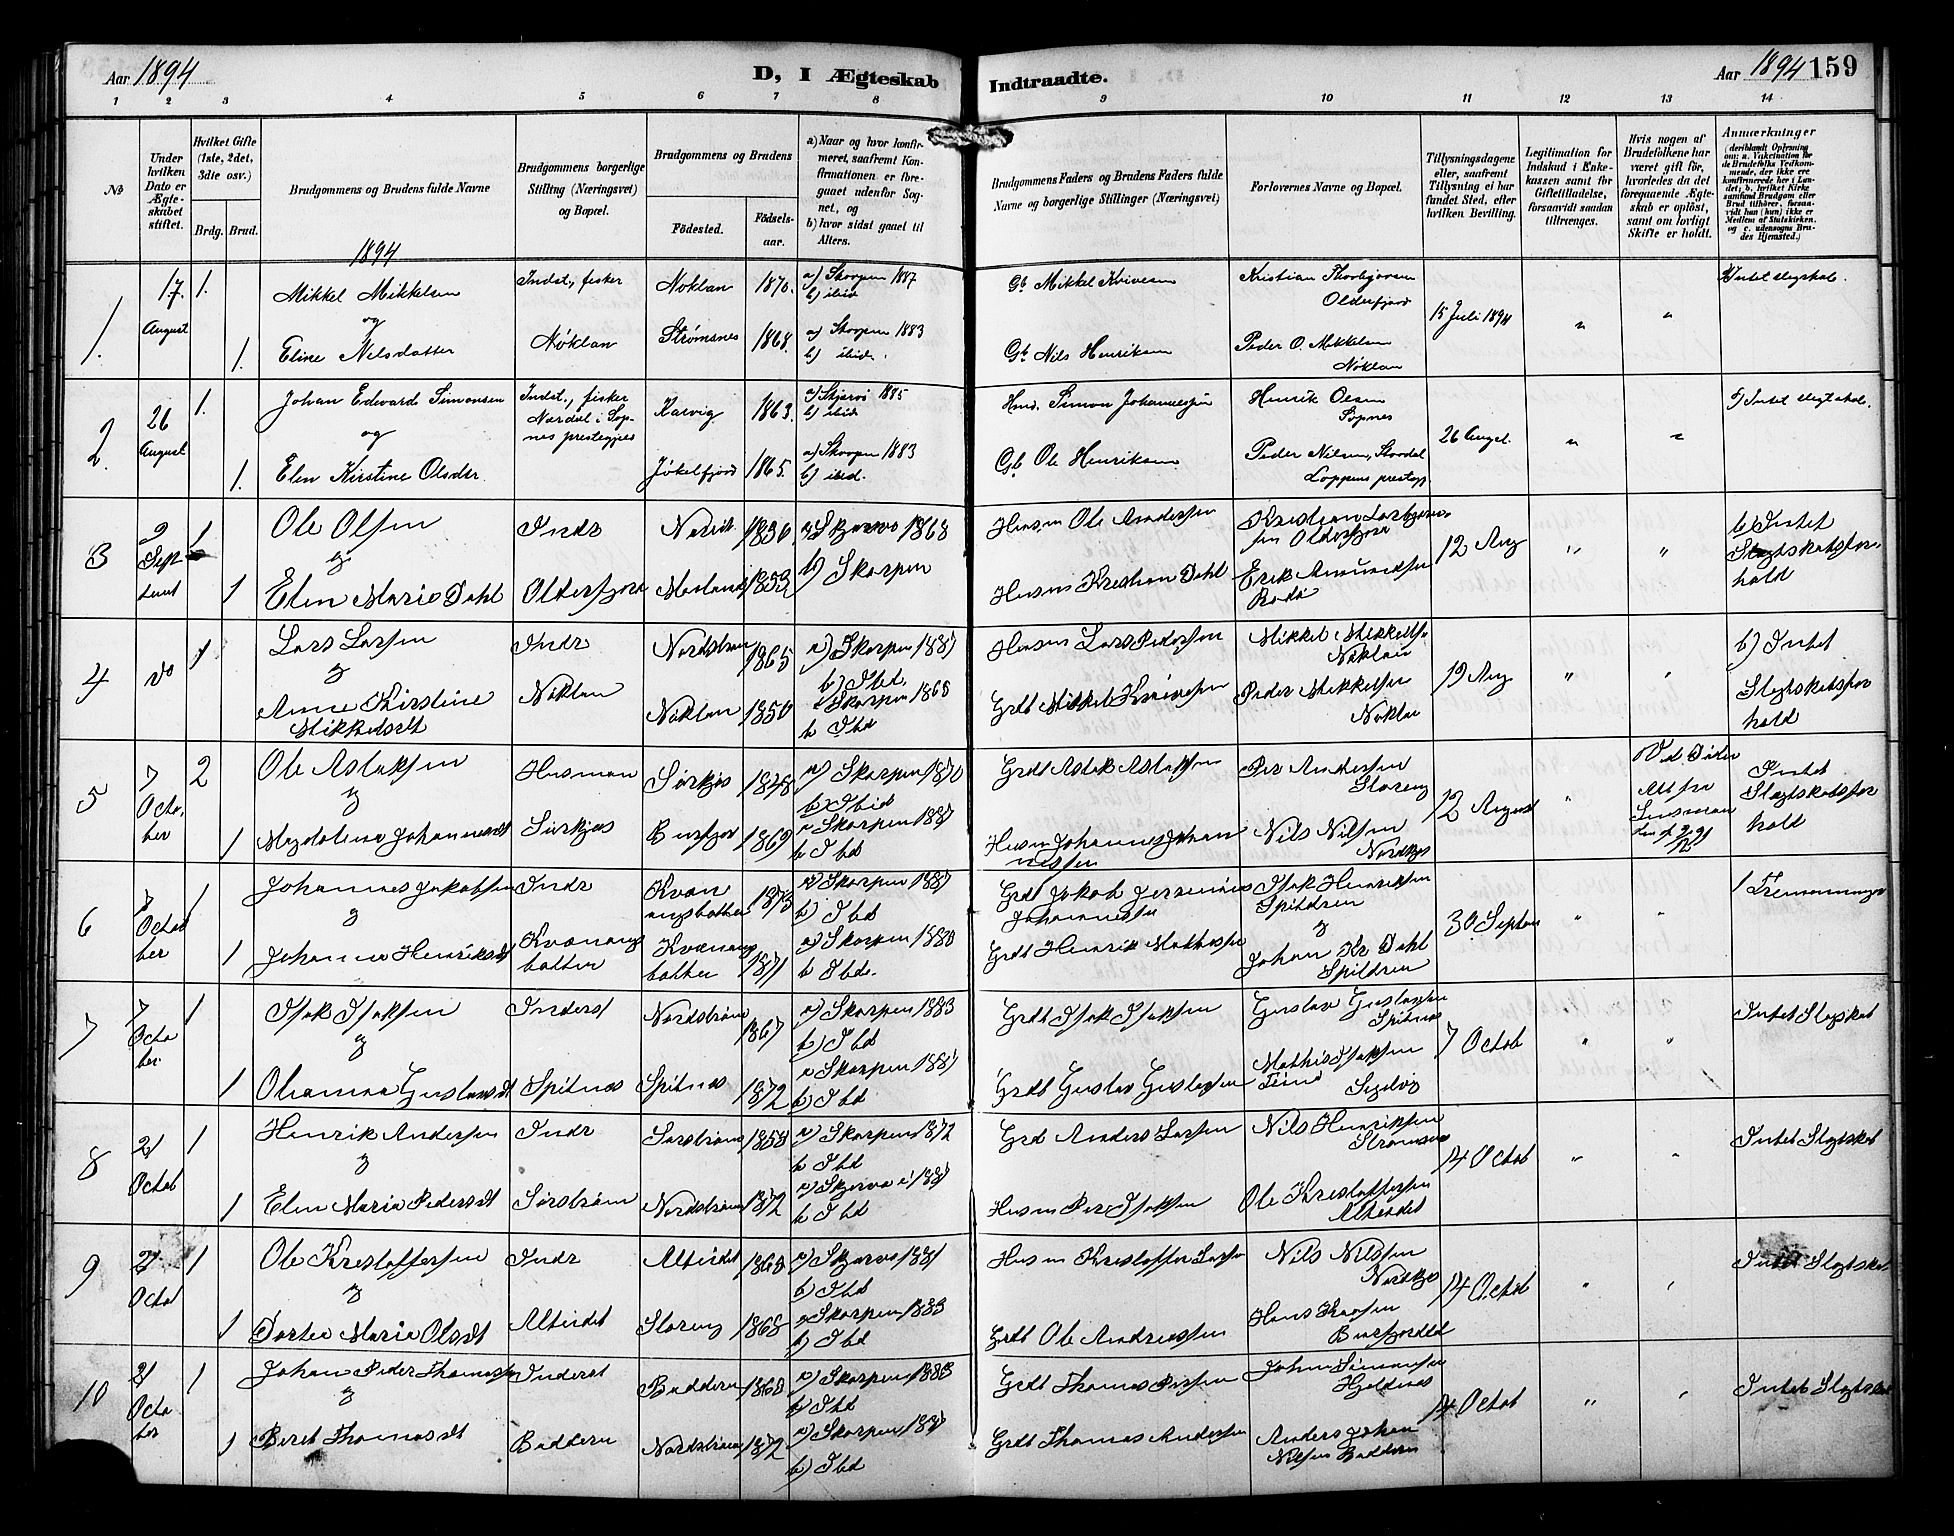 Aar 1894
D, I Ægteskab Indtraadte.
Aar 1894 159
1 2 3 4 5 6 7 8 9 10 11 12 13 14
№
Under hvilken Dato er Ægteskabet stiftet.
Hvilket Gifte (1ste, 2det, 3die osv.)
Brdg. Brud.
Brudgommens og Brudens fulde Navne
Brudgommens borgerlige Stilling (Næringsvei) og Bopæl.
Brudgommens og Brudens
Fødested.
Fødselsaar.
a) Naar og hvor konfirmeret, saafremt Konfirmationen er foregaaet udenfor Sognet, og
b) hvor sidst gaaet til Alters.
Brudgommens Faders og Brudens Faders fulde Navne og borgerlige Stillinger (Næringsvei)
Forlovernes Navne og Bopæl.
Tillysningsdagene eller, saafremt Tillysning ei har fundet Sted, efter hvilken Bevilling.
Legitimation for Indskud i Enkekassen samt for Giftetilladelse, forsaavidt saadan tiltrænges.
Hvis nogen af Brudefolkene har været gift før, hvorledes da det foregaaende Ægteskab er opløst, samt om lovligt Skifte er holdt.
Anmærkninger
(deriblandt Oplysning om: a. Vaksination for de Brudefolks Vedkommende, der ikke ere konfirmerede her i Landet; b. hvilket Kirkesamfund Brudgom eller Brud tilhører, forsaavidt han (hun) ikke er Medlem af Statskirken, og c. udensogns Brudes Hjemsted.)
1894
1. 17. August 1. Mikkel Mikkelsen Indst., fisker Noklan 1870. a) Skorpen 1887 b) ibid Gb Mikkel Kvivesen Kristian Thorbjørnsen Olderfjord 15 Juli 1894 " " Intet slegtskab.
og
1. Eline Nilsdatter Nøklan Strømsnes 1868. a) Skorpen 1883 b) ibid. Gb Nils Henriksen Peder O. Mikkelsen Nøklan
2. 26 August 1. Johan Edvard Simonsen Indst., fisker Nordal i Sopnes prestegjeld Karvig 1863. a) Skjervø 1885 b) ibid Hmd. Simon Johannessøn Henrik Olsen Sopnes 26 Augst. " " Intet slegtskab.
og
1. Elen Kirstine Olsdtr. Jøkelfjord 1865. a) Skorpen 1883 b) ibid. Gb Ole Henriksen Peder Nilsen, Stordal Loppens prestegj
3 2 September 1 Ole Olsen Indr Nordit 1836 a) Skjervø 1868 Husm Ole Andersen 12 Aug " " b) Intet Slegtskabsforhold
og
1 Elen Marie Dahl Olderfjord 1853 b) Skorpen Husm Kristian Dahl Erik Amundsen
4 do 1 Lars Larsen Indr Nordstrøm 1865 a) Skorpen 1887 b) Ibd. Husm Lars Pedersen Mikkel Mikkelsen Noklan 19 Aug " " b) Intet Slegtskabsforhold
og
Anne Kirstine Mikkelsdt Noklan Noklan 1850 a) Skorpen 1868 b Ibd Grdb Mikkel Kvivesen Peder Mikkelsen Noklan
5 7 October 2 Ole Aslaksen Husman Sørkjos 1828 a) Skorpen 1870 b) Ibid Grdb Aslak Aslaksen Per Andersen Storeng 12 August " Intet Slegtskabsforhold
og
1 Magdalina Johannesdt Sørkjos Burfjord 1869 a Skorpen 1887 b Ibd Husm Johannes Johannessen Nils Nilsen Nordkjos
6 7 October 1 Johannes Jakobsen Indr Kvænangsbotten 1873 a) Skorpen 1887 b) Ibd Grdb Jakob Johannessen Isak Henriksen Spildren 30 Septem " " Fremmninge
og
1 Johanna Henriksdt Kvænangsbotten Kvænangsbotten 1871 a) Skorpen 1888 b Ibd. Grdb Henrik Mathisen Johan Kr Dahl Spildren
7 7 October 1 Isak Isaksen Inderst Nordstrøm 1867 a) Skorpen 1883 b) Ibd Grdb Isak Isaksen Gustav Gustavsen Spitnes 7 Octob " " Intet Slegskab
og
1 Oleanna Gustavsdt Spitnes Spitnes 1872 a Skorpen 1887 b) Ibd Grdb Gustav Gustavsen Mathis Isaksen Segelvig
8 21 Octob 1 Henrik Andersen Indr Sørstrøm 1858 a) Skorpen 1872 b Ibd Grd Anders Larsen Nils Henriksen Strømsnes 14 Octob " " Intet Slegtskab
og
1 Elen Maria Pedersdt Sørstrøm Nordstrøm 1872 a) Skjervø i 1887 b Ibd Husm Per Isaksen Ole Kristoffersen Alteidet
9 21 Octob 1 Ole Kristoffersen Indr Alteidet 1868 a) Skjervø 1881 b) Ibd Husm Kristoffer Larsen Nils Nilsen Nordkjos 14 Octob " " Intet Slegtskab
og
1 Dortea Maria Olsdt Alteidet Storeng 1868 a Skorpen 1883 b) Ibd Grdb Ole Andreassen Hans Hansen Burfjorded
10 21 October 1 Johan Peder Thomassen Inderst Baddern 1868 a) Skorpen 1883 b) Ibd Grdb Thomas Persen Johan Simonsen 14 Octob " " Intet Slegtskab
og
1 Beret Thomasdt Baddern Nordstrøm 1872 a) Skorpen 1887 b) Ibd Grdb Thomas Andersen Anders Johan Nilsen Baddern